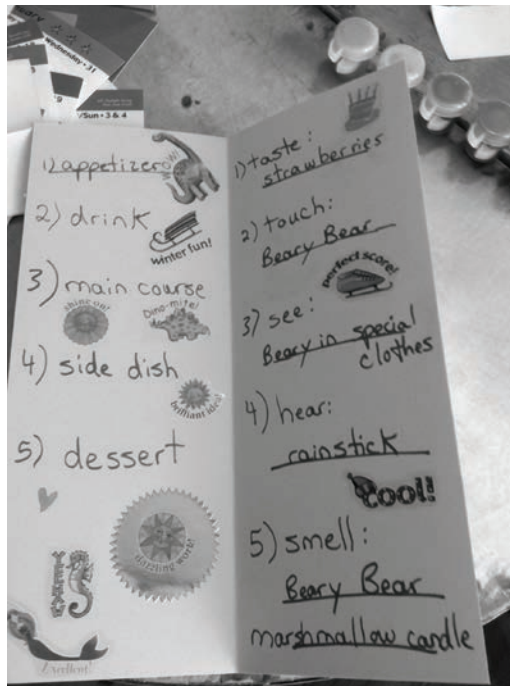 Wednesday • 31
/Sun • 3 & 4
1) appetizer
WOW!
2) drink
winter fun!
3) main course
shine on!
Dino-mite!
4) side dish
brilliant idea!
5) dessert
dazzling work!
Excellent!
1) taste:
strawberries
2) touch:
Beary Bear
perfect score!
3) see:
Beary in special
clothes
4) hear:
rainstick
cool!!
5) smell:
Beary Bear
marshmallow candle